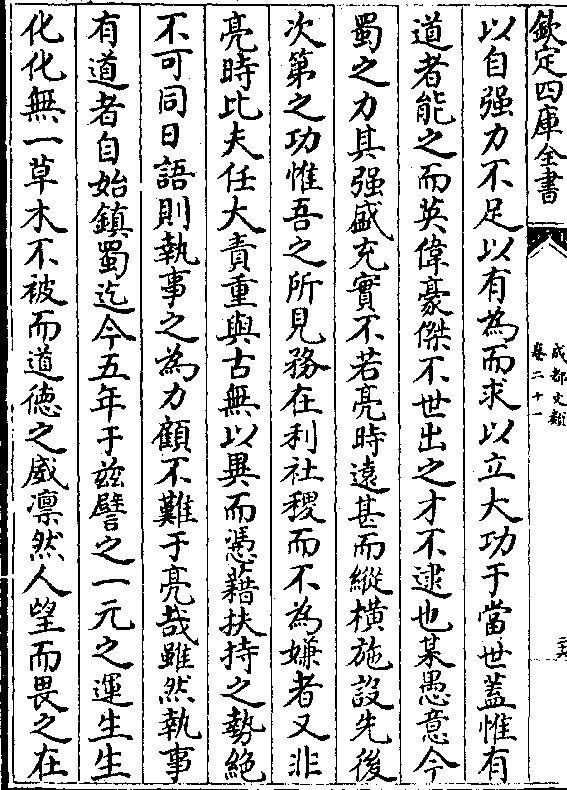 欽定四庫全書
成都文類
卷二十一
以自强力不足以有為而求以立大功于當世蓋惟有
道者能之而英偉豪傑不世出之才不逮也某愚意今
蜀之力其强盛充實不若亮時遠甚而縱横施設先後
次第之功惟吾之所見務在利社稷而不為嫌者又非
亮時比夫任大責重與古無以異而憑藉扶持之勢絶
不可同日語則執事之為力顧不難于亮哉雖然執事
有道者自始鎮蜀迄今五年于兹譬之一元之運生生
化化無一草木不被而道徳之威凛然人望而畏之在